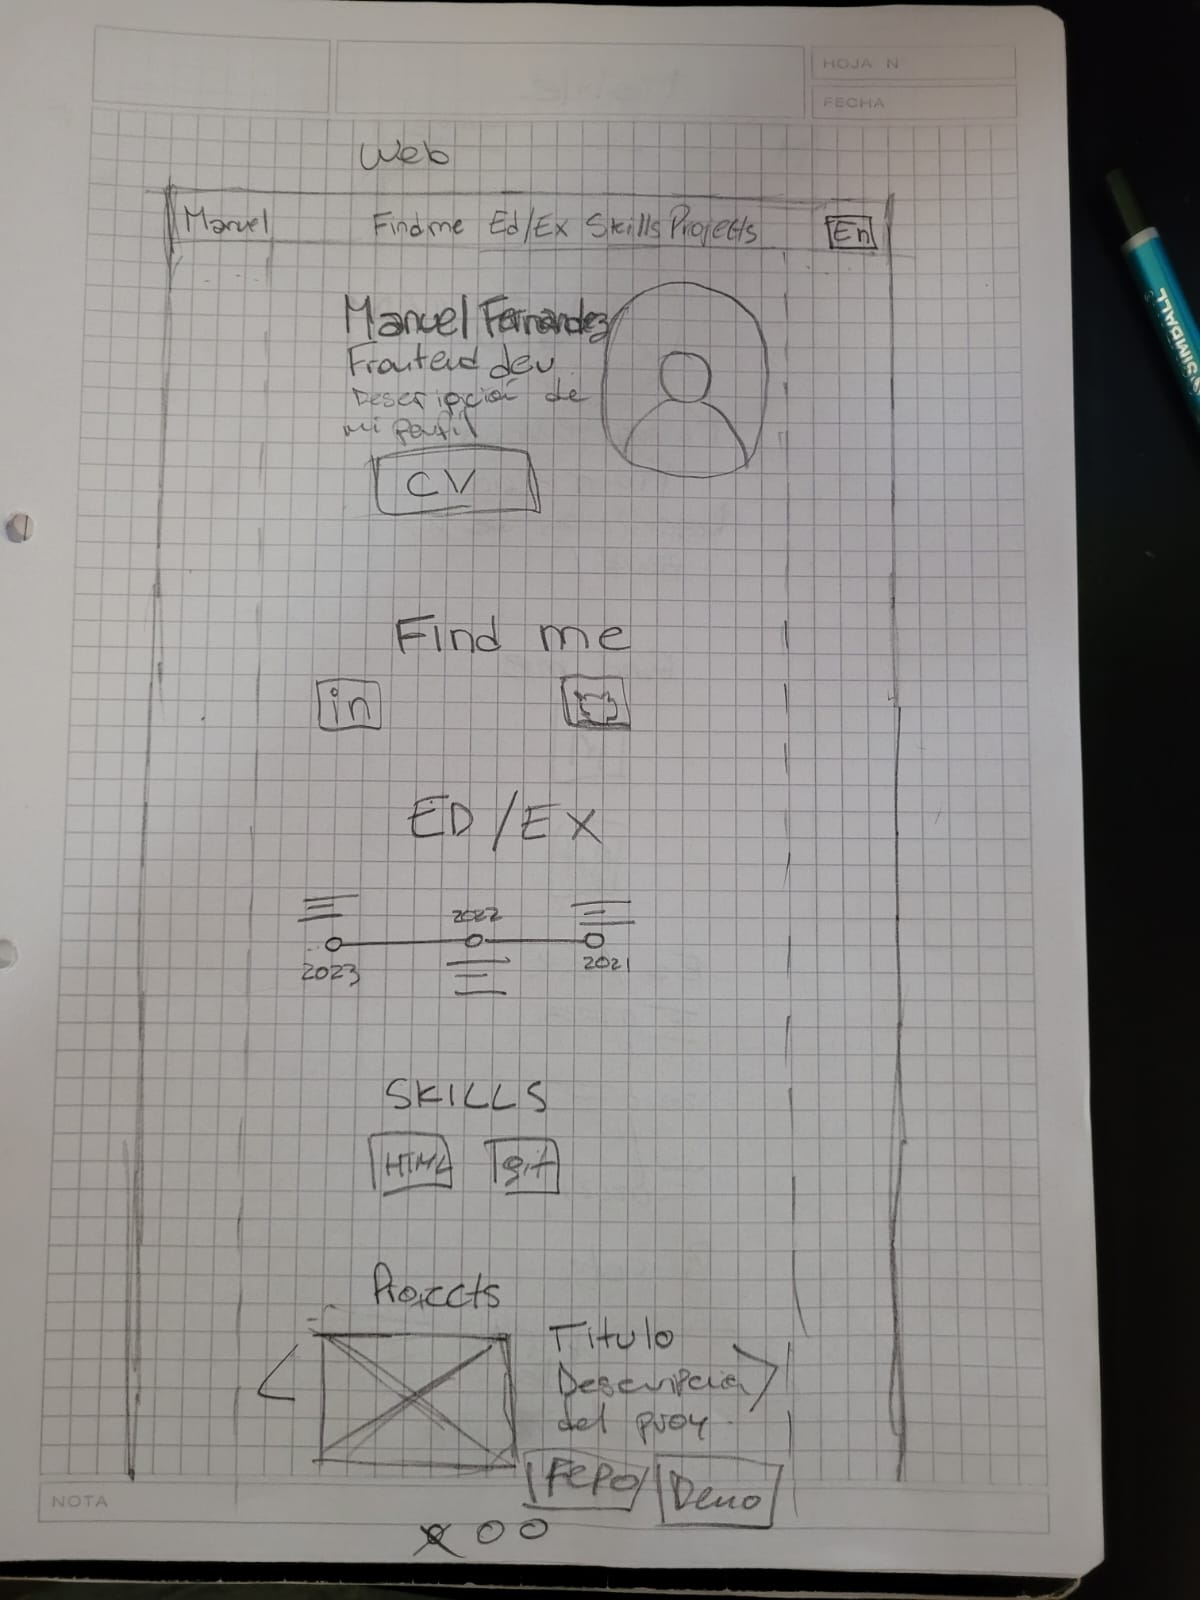 HOJA N
FECHA
Web
Manuel Findme Ed/Ex Skills Projects En
Manuel Fernandez
Frontend dev
Descripción de
mi perfil
CV
Find me
in
ED/EX
2022
2023 2021
SKILLS
HTML git
Projects
Titulo
Descripcion
del proy.
Repo Demo
NOTA
SIMBALL